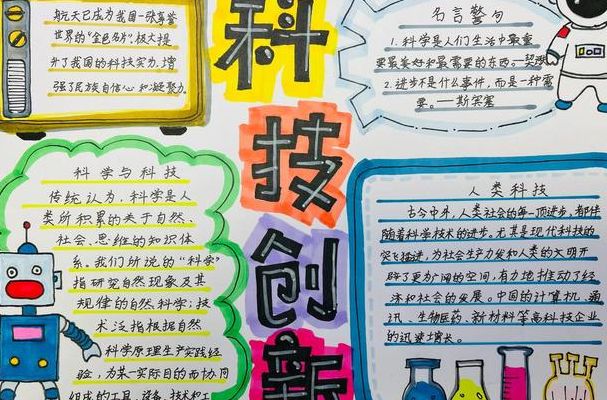 航天已成为我国一张享誉
世界的“金色名片”,极大提
升了我国的科技实力,增
强了民族自信心和凝聚力。
科
技
创
新
名言警句
1.科学是人们生活中最重
要最美好和最需要的东西。—契诃夫
2.进步不是什么事件,而是一种需
要。——斯宾塞
科学与科技
传统认为,科学是人
类所积累的关于自然、
社会、思维的知识体
系。我们所说的“科学”
指研究自然现象及其
规律的自然科学;技
术泛指根据自然
科学原理生产实践经
验,为某一实际目的而协同
组成的工具、设备、技术和工
人类科技
古今中外,人类社会的每一项进步,都伴
随着科学技术的进步。尤其是现代科技的
突飞猛进,为社会生产力发和人类的文明开
辟了更为广阔的空间,有力地推动了经
济和社会的发展。中国的计算机、通
讯、生物医药、新材料等高科技企业
的迅速增长。